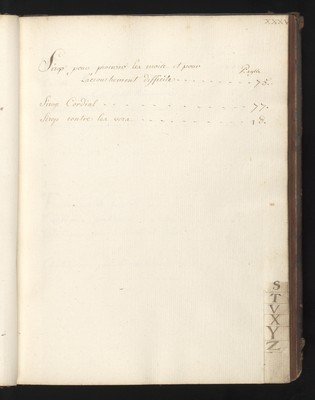 XXXV
Sirop pour provoquer les mois, et pour
l'accouchement difficile - - - - - - - - 78.
Sirop Cordial - - - - - - - - - - - - 77.
Sirop contre les vers - - - - - - - - - 18.
S
T
V
X
Y
Z